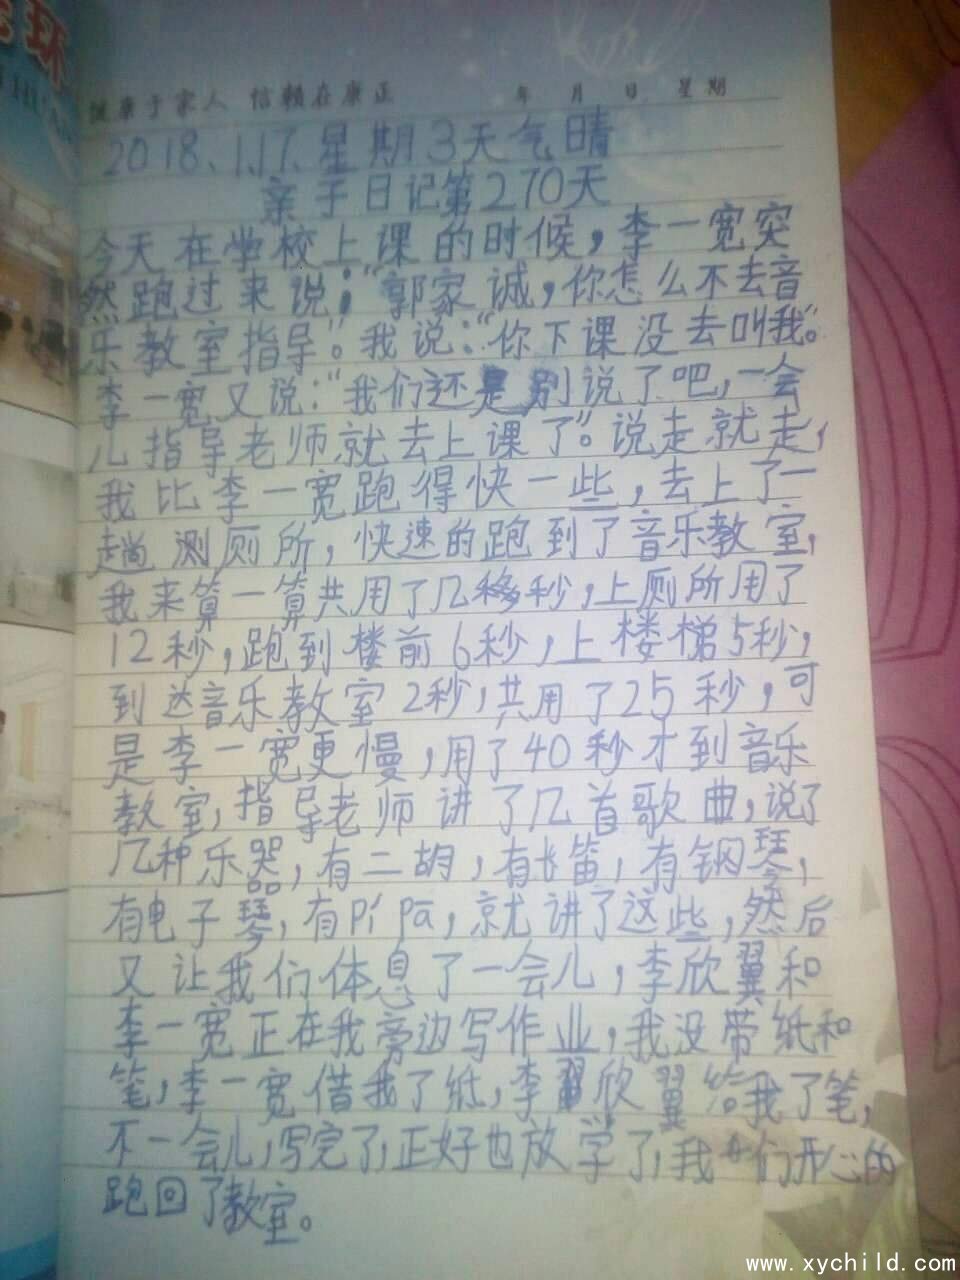 健康于家人 信赖在康正 年 月 日 星期
2018、1.17、星期3天气晴
亲子日记第270天
今天在学校上课的时候，李一宽突
然跑过来说；“郭家诚，你怎么不去音
乐教室指导”。我说：“你下课没去叫我”。
李一宽又说：“我们还是别说了吧，一会
儿指导老师就去上课了”。说走就走，
我比李一宽跑得快一些，去上了一
趟测厕所，快速的跑到了音乐教室，
我来算一算共用了几秒，上厕所用了
12秒，跑到楼前6秒，上楼梯5秒，
到达音乐教室2秒，共用了25秒，可
是李一宽更慢，用了40秒才到音乐
教室，指导老师讲了几首歌曲，说了
几种乐器，有二胡，有长笛，有钢琴，
有电子琴，有pí pā，就讲了这些，然后
又让我们体息了一会儿，李欣翼和
李一宽正在我旁边写作业，我没带纸和
笔，李一宽借我了纸，李欣翼给我了笔，
不一会儿，写完了，正好也放学了，我们开心的
跑回了教室。
www.xychild.com